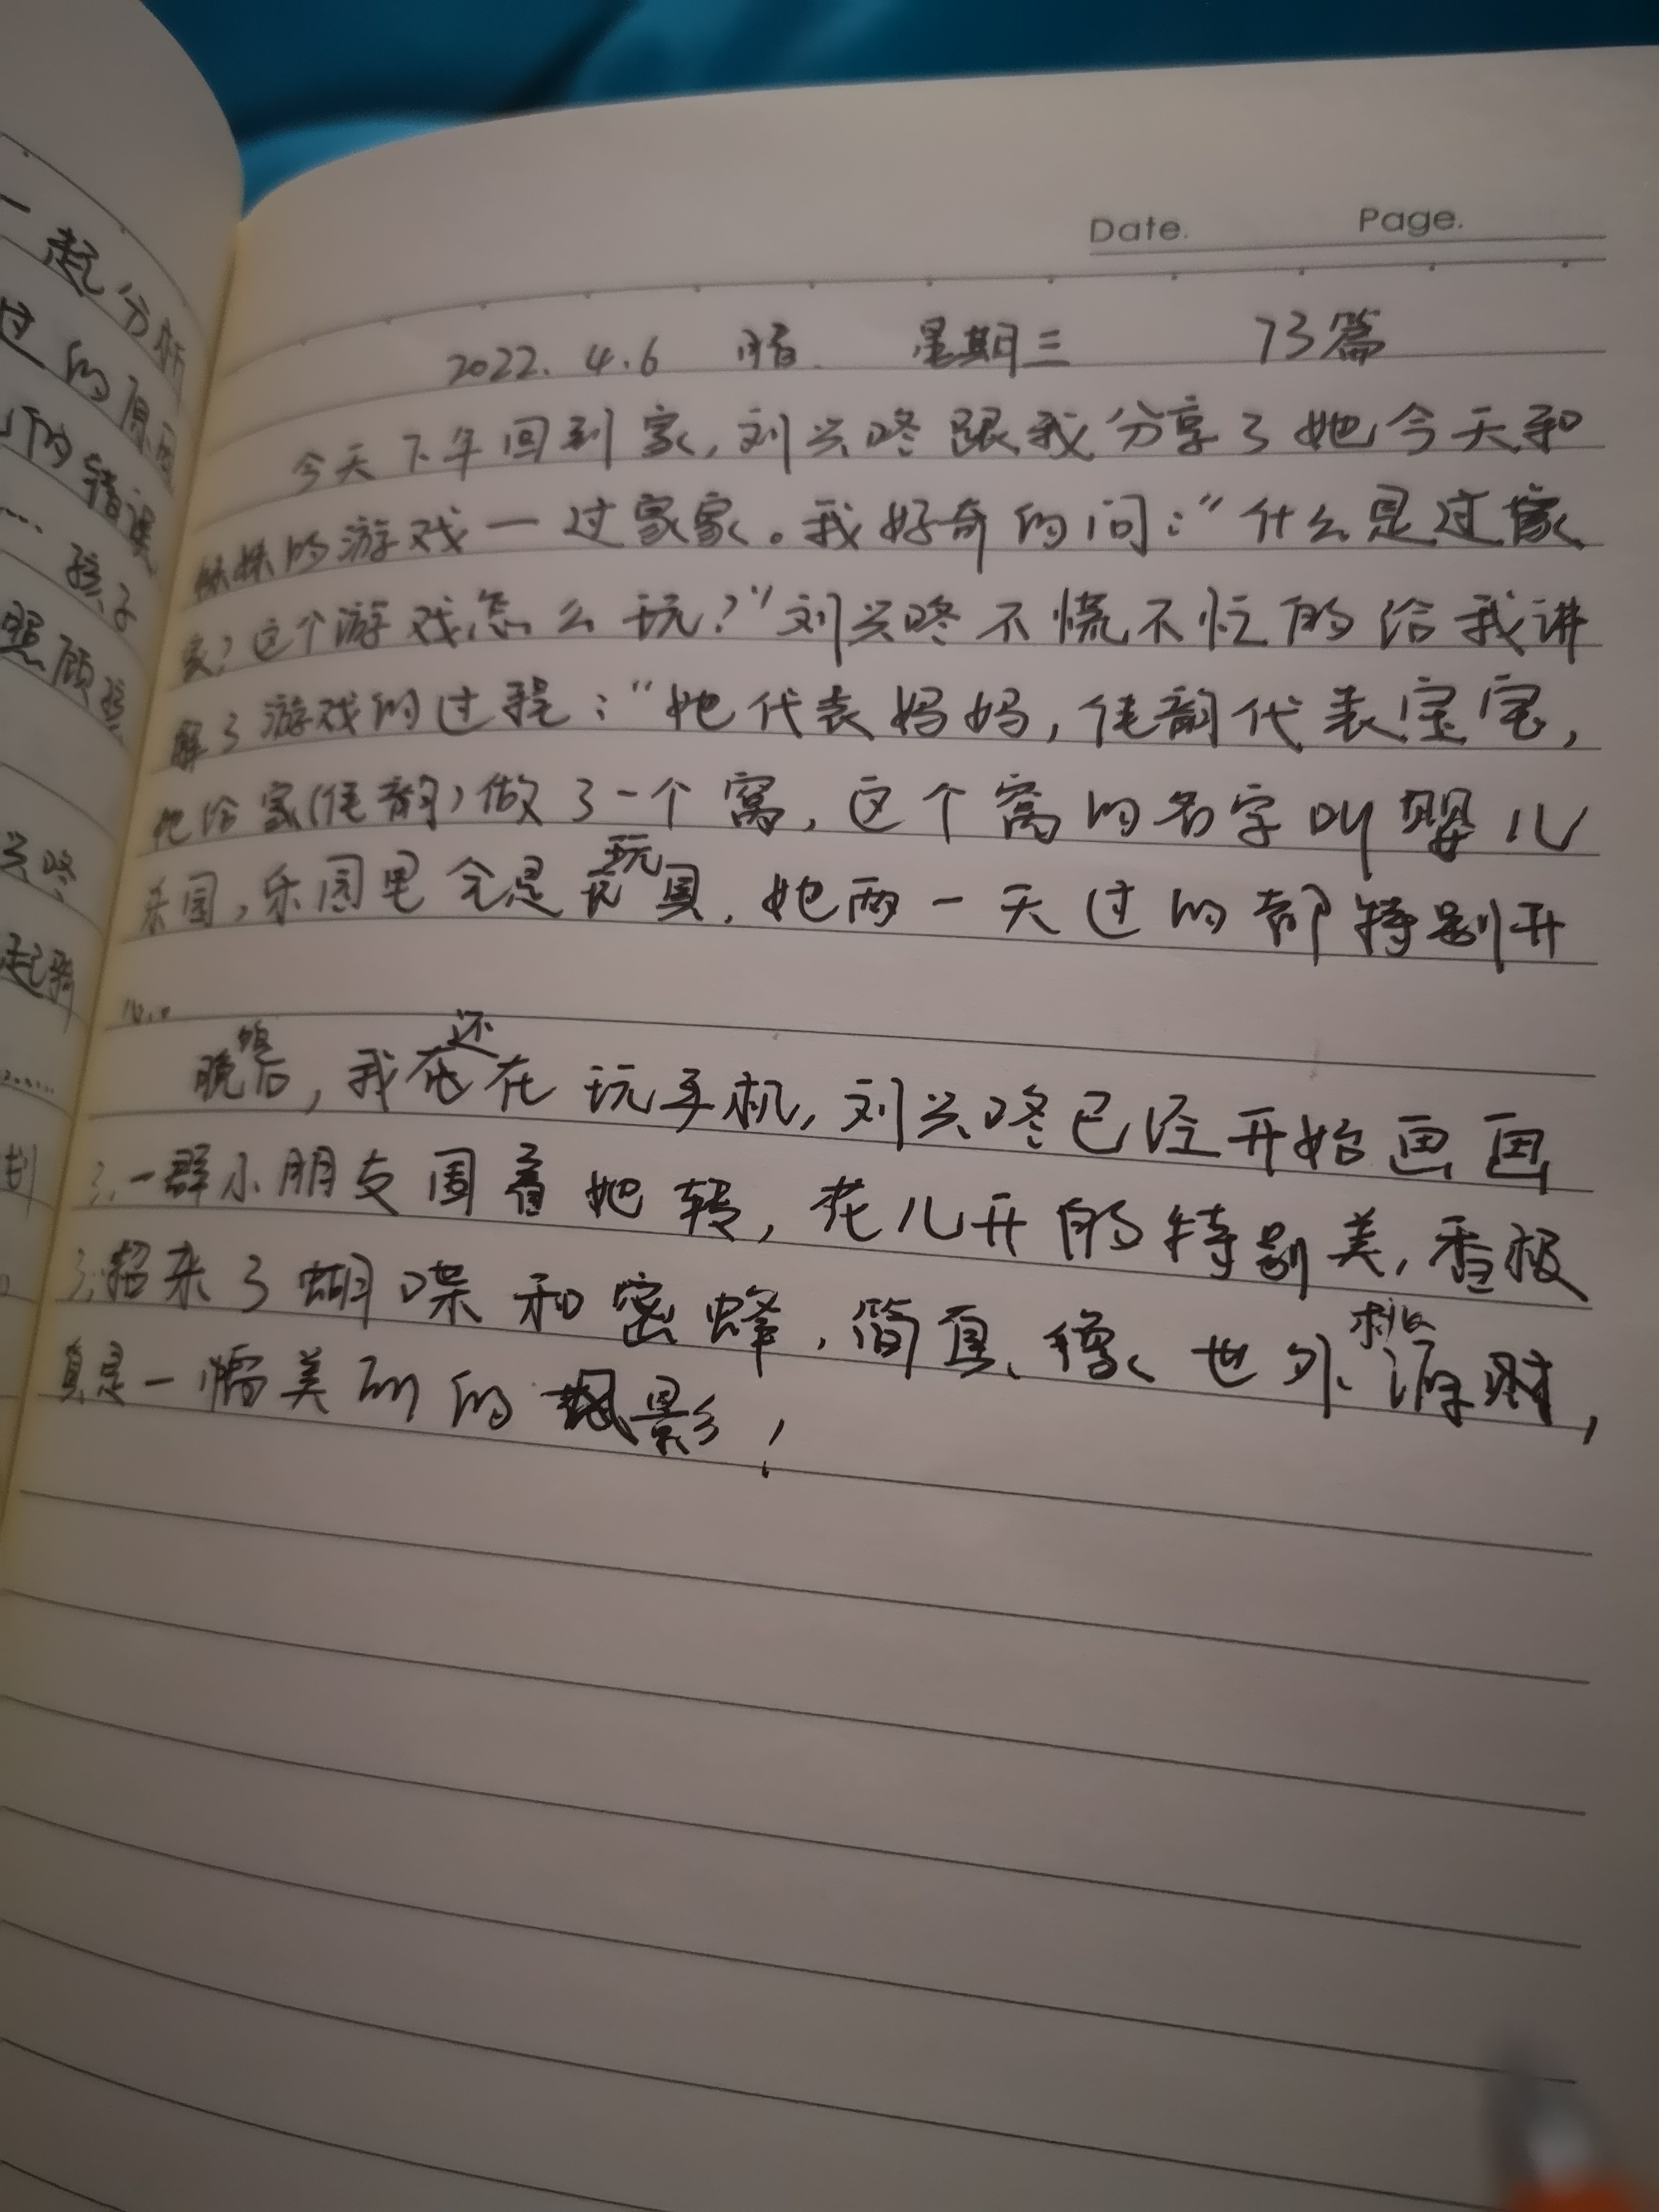 一起分析
过的原因
的错误
…… 孩子
照顾孩
兴咚
Date. Page.
2022. 4. 6 晴 星期三 73篇
今天下午回到家,刘兴咚跟我分享了她今天和
妹妹的游戏一过家家。我好奇的问:“什么是过家
家?这个游戏怎么玩?”刘兴咚不慌不忙的给我讲
解了游戏的过程:“她代表妈妈,佳韵代表宝宝,
她给家(佳韵)做了一个窝,这个窝的名字叫婴儿
乐园,乐园里全是玩具,她两一天过的都特别开
心。
晚饭后,我还在玩手机,刘兴咚已经开始画画
了,一群小朋友围着她转,花儿开的特别美,香极
了,招来了蝴喋和密蜂,简直像世外桃源时,
真是一懦美丽的风影!